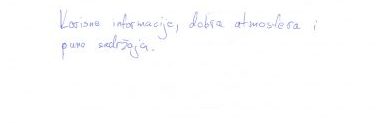 Korisne informacije, dobra atmosfera i
puno sadržaja.